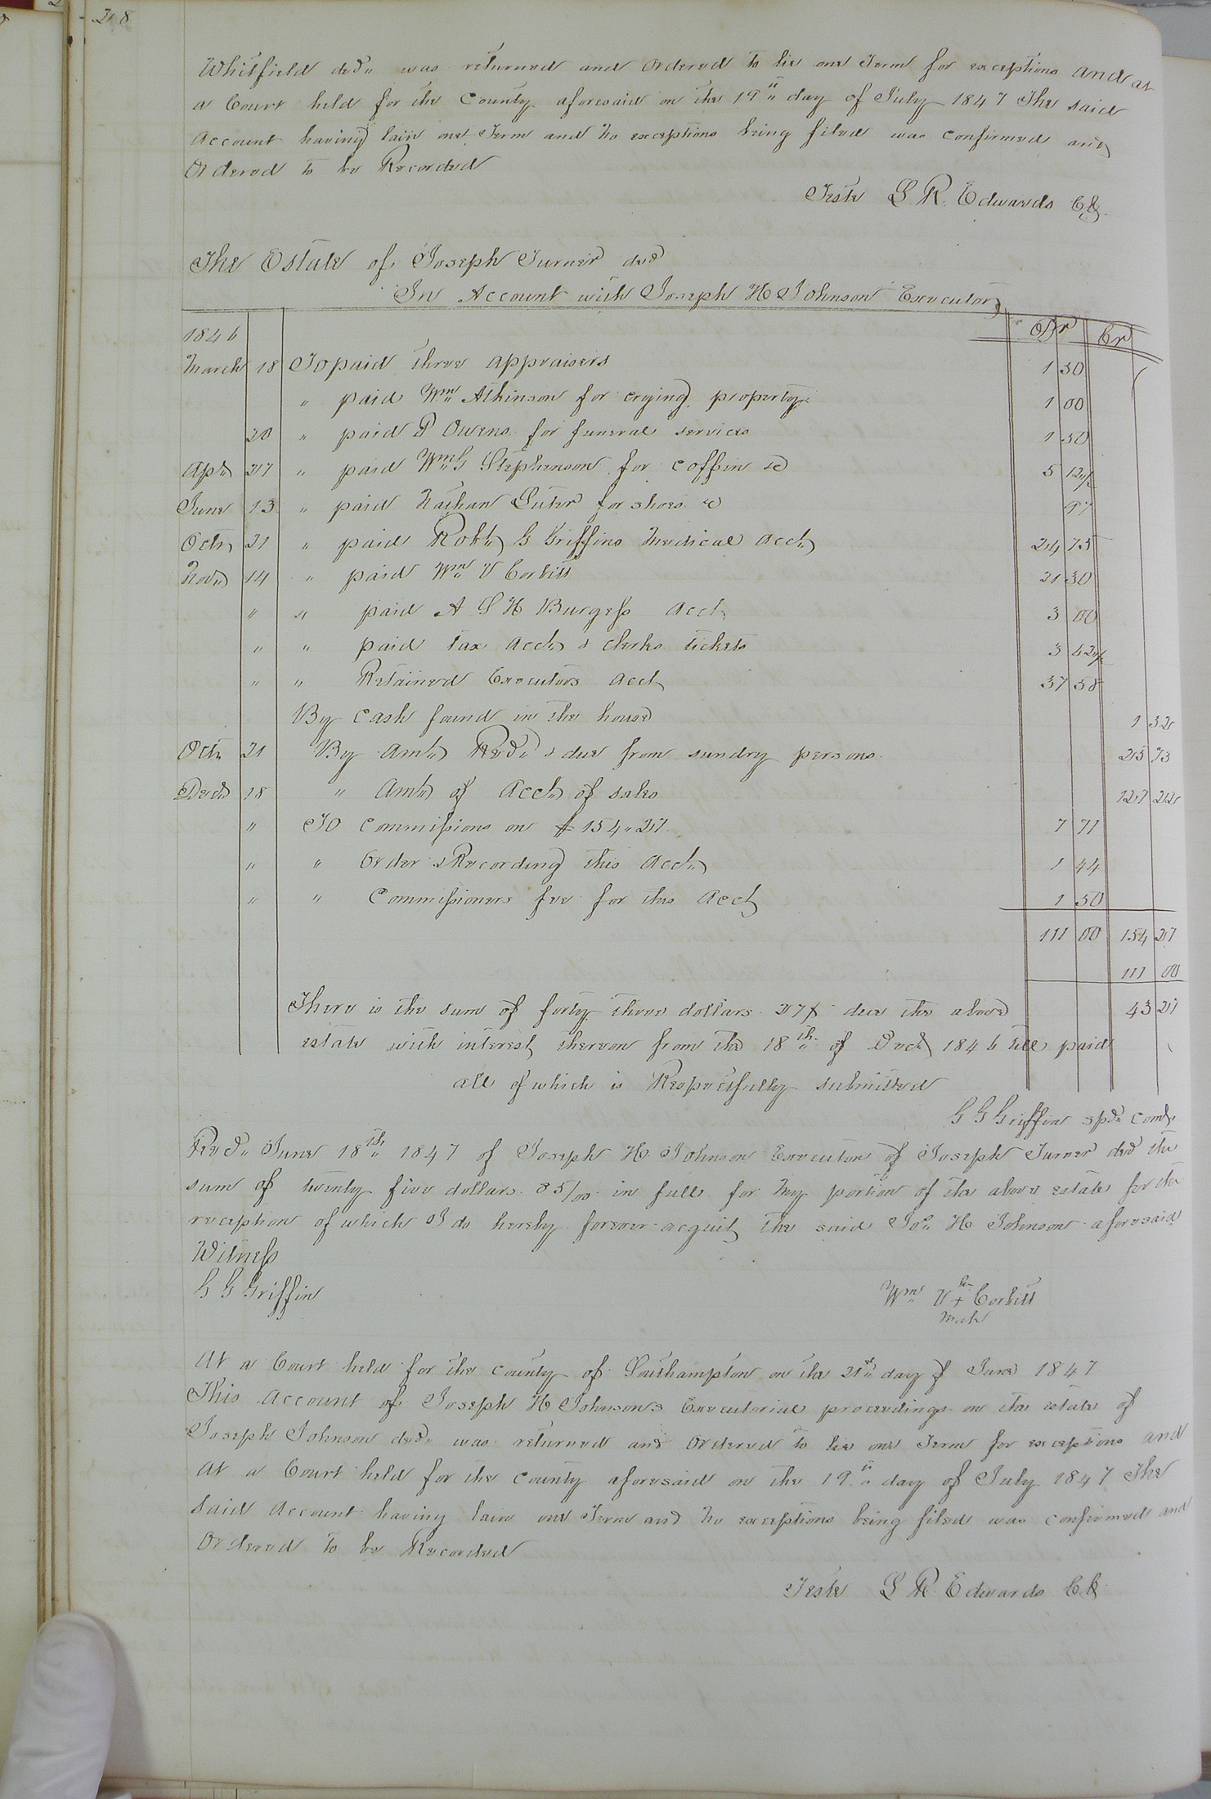 218
Whitfield decd. was returned and Ordered to lie one Term for exceptions and at
a Court held for the County aforesaid on the 19th day of July 1847 The said
Account having lain one Term and no exceptions being filed was confirmed and
Ordered to be Recorded
Teste L R Edwards Clk
The Estate of Joseph Turner decd
In Account with Joseph H Johnson Executor
1846 Dr Cr
March 18 To paid three appraisers 1 50
" paid Wm Atkinson for crying property 1 00
20 " paid P Owens for funeral services 1 50
Apl. 27 " paid Wm G Stephenson for coffin &c 5 12½
June 13 " paid Nathan Luter for shoes &c 97
Octr 21 " paid Robt G Griffins Medical Acct 24 75
Novr 14 " paid Wm V Corbitt 21 50
" " paid A S H Burgess Acct 3 00
" " paid tax Acct & clerks tickets 3 42½
" " Retained Executors Acct 37 58
By cash found in the house 1 32
Octr 21 By Amt Recd. & due from sundry persons 25 73
Decr 18 " Amt of Acct of sales 127 22
" To commissions on $154.27 7 71
" " Order & Recording this Acct 1 44
" " Commissioners fee for this Acct 1 50
111 00 154 27
111 00
There is the sum of forty three dollars 27¢ due the above 43 27
estate with interest thereon from the 18th of Decr 1846 till paid
all of which is Respectfully submitted
G G Griffin spl. Comr
Recd. June 18th 1847 of Joseph H Johnson Executor of Joseph Turner decd the
sum of twenty five dollars 85/100 in full for my portion of the above estate for the
reception of which I do hereby forever acquit the said Jos. H Johnson aforesaid
Witness
G G Griffin
his
Wm V + Corbitt
mark
At a Court held for the county of Southampton on the 21st day of June 1847
This Account of Joseph H Johnson's Executorial proceedings on the estate of
Joseph Johnson decd. was returned and Ordered to lie one Term for exceptions and
At a Court held for the county aforesaid on the 19th day of July 1847 The
said Account having lain one Term and no exceptions being filed was confirmed and
Ordered to be Recorded
Teste L R Edwards Clk